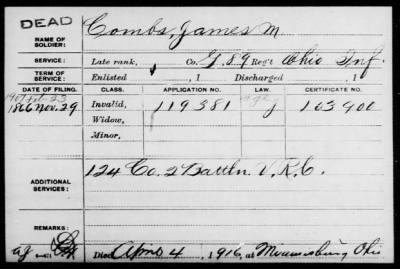 DEAD
NAME OF SOLDIER: Combs, James M.
SERVICE: Late rank, Co. G, 89 Reg't Ohio Inf.
TERM OF SERVICE: Enlisted , 1 Discharged , 1
DATE OF FILING. CLASS. APPLICATION NO. LAW. CERTIFICATE NO.
1907 Feb-23
1866 Nov. 29 Invalid, 119381 163900
Widow,
Minor,
ADDITIONAL SERVICES: 124 Co. 2 Battln. V.R.C.
REMARKS:
Died April 4, 1916, at Miamisburg Ohio